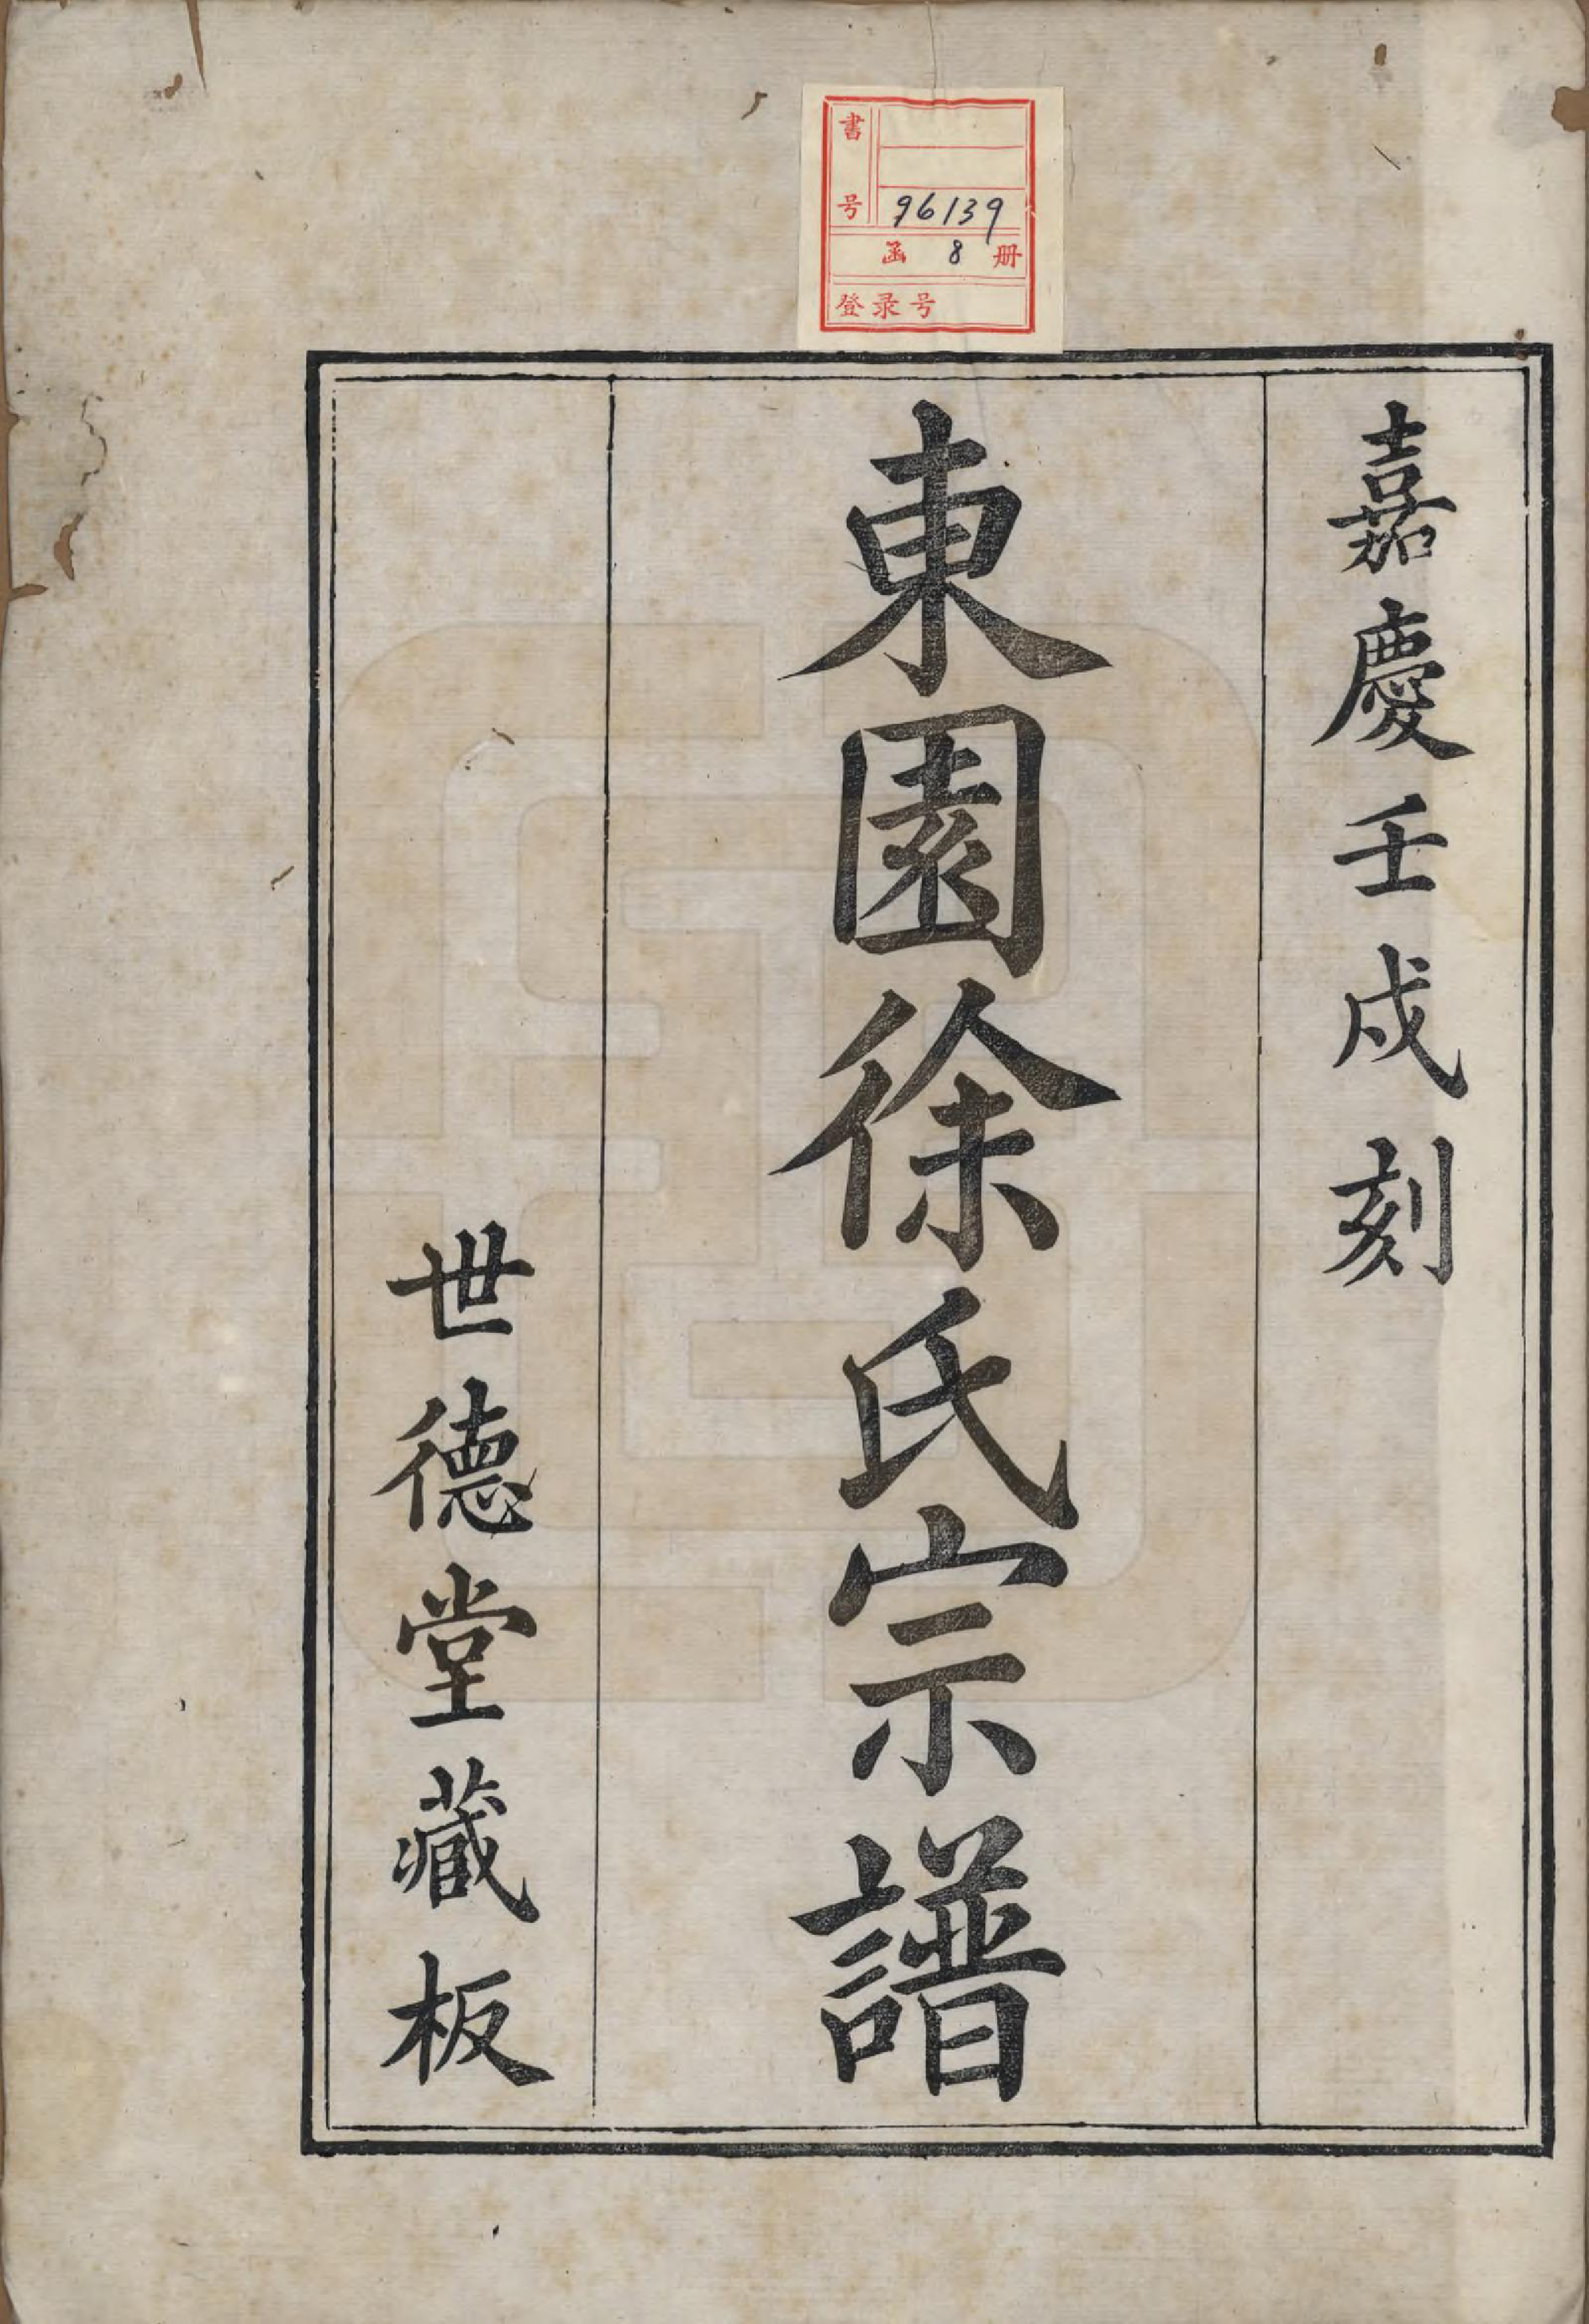 書号 96139
函 8 册
登录号
嘉慶壬戌刻
東園徐氏宗譜
世德堂藏板